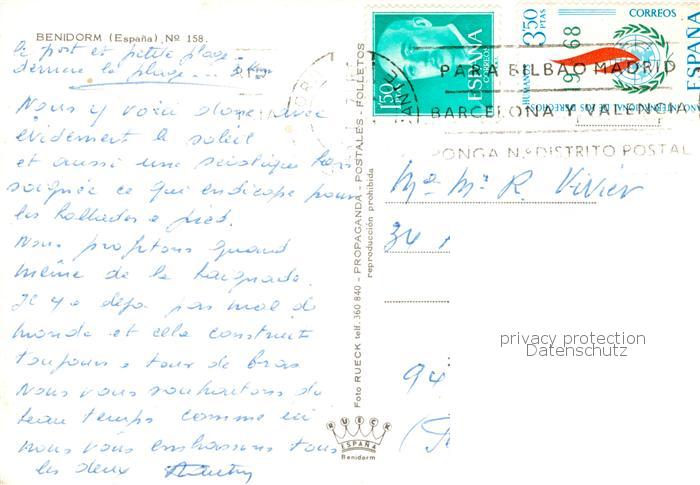 BENIDORM (España) Nº 158.
le port et petite plage.
derrière la plage...
Nous y voici donc avec
évidemment le soleil
et aussi une sciatique
soignée ce qui handicape pour
les ballades à pied.
Nous profitons quand
même de la baignade.
Il y a déjà pas mal de
monde et cela construit
toujours a tour de bras
Nous vous souhaitons du
beau temps comme ici
nous vous embrassons tous
les deux
Foto RUECK telf. 360 840 - PROPAGANDA - POSTALES - FOLLETOS
reproducción prohibida
RUECK
ESPAÑA
Benidorm
1'50 PTAS
CORREOS
ESPAÑA
3'50 PTAS
CORREOS
ESPAÑA
1968
HUMANOS
INTERNACIONAL DE LOS DERECHOS
ALICANTE
PARA BILBAO MADRID
BARCELONA Y VALENCIA
PONGA N.º DISTRITO POSTAL
Mª Mª R. Vivier
34
94
privacy protection
Datenschutz